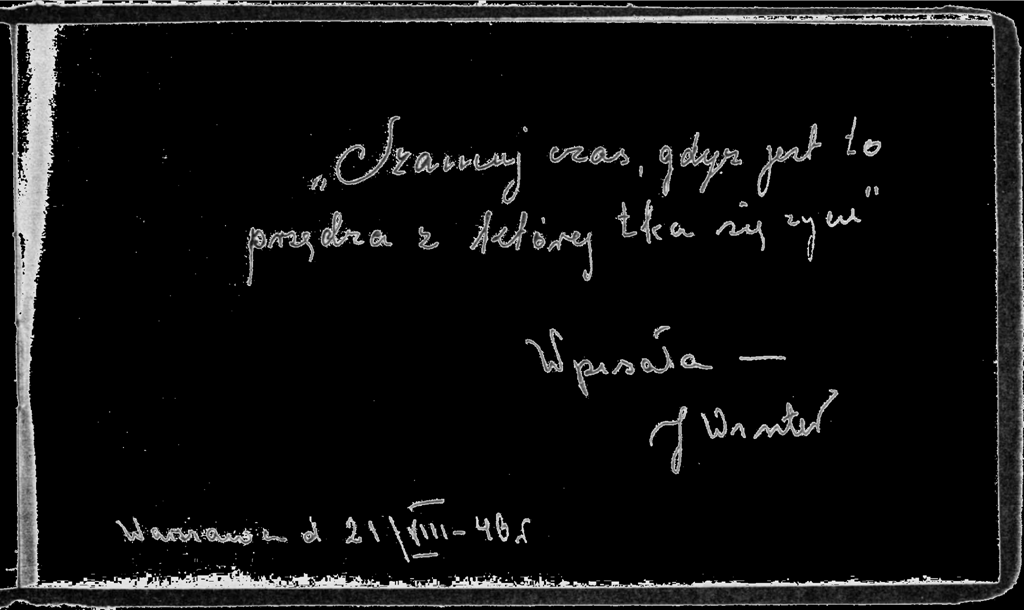 „Szanuj czas, gdyż jest to
przędza z której tka się życie"
Wpisała —
J Winter
Warszawa d 21/VIII-46 r